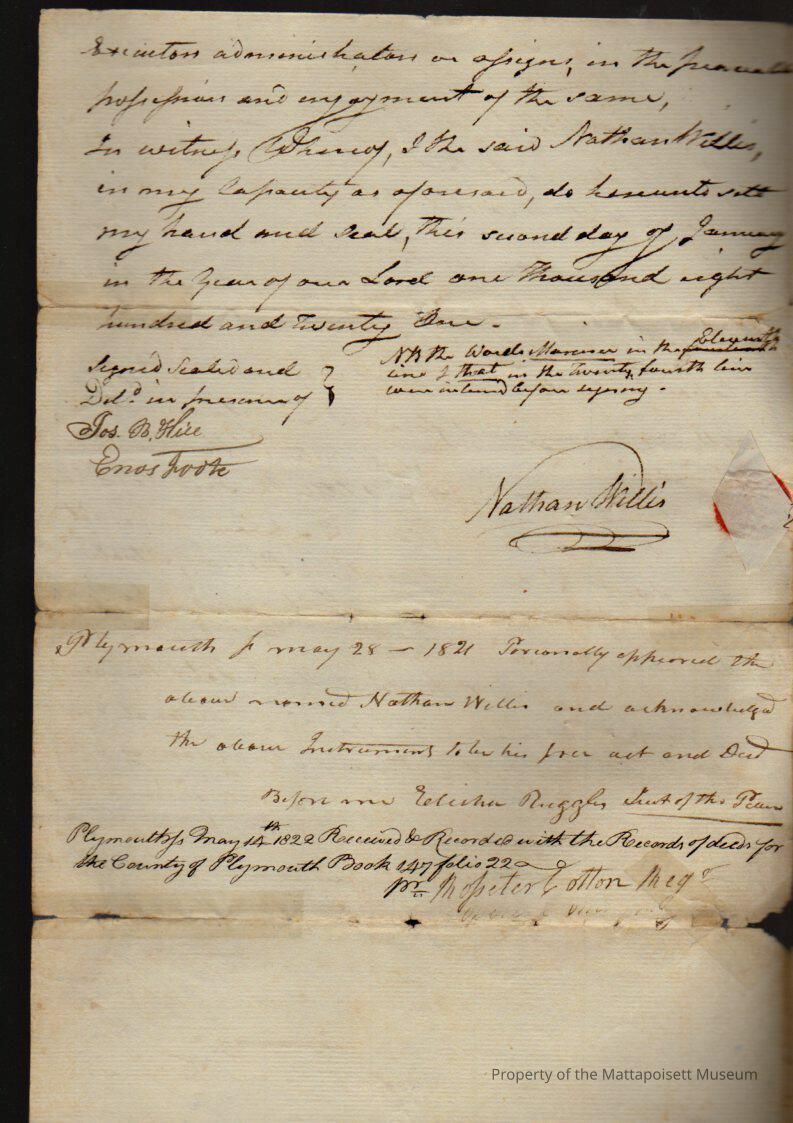 Executors administrators or assigns, in the peaceable
possession and enjoyment of the same,
In witness Whereof, I the said Nathan Willis,
in my Capacity as aforesaid, do hereunto sett
my hand and seal, this second day of January
in the Year of our Lord one Thousand eight
hundred and Twenty One.
Signed Sealed and
Deld in presence of
NB the Words Mariner in the Eleventh
line & that in the twenty fourth line
were interlined before signing.
Jos. B. Hill
Enos Foote
Nathan Willis
Plymouth ss may 28 - 1821 Personally appeared the
above named Nathan Willis and acknowledged
the above Instrument to be his free act and Deed
Before me Elisha Ruggles Just of the Peace
Plymouth ss May 14th 1822 Received & Recorded with the Records of deeds for
the County of Plymouth Book 147 folio 22
pr Rosseter Cotton Regr
Property of the Mattapoisett Museum